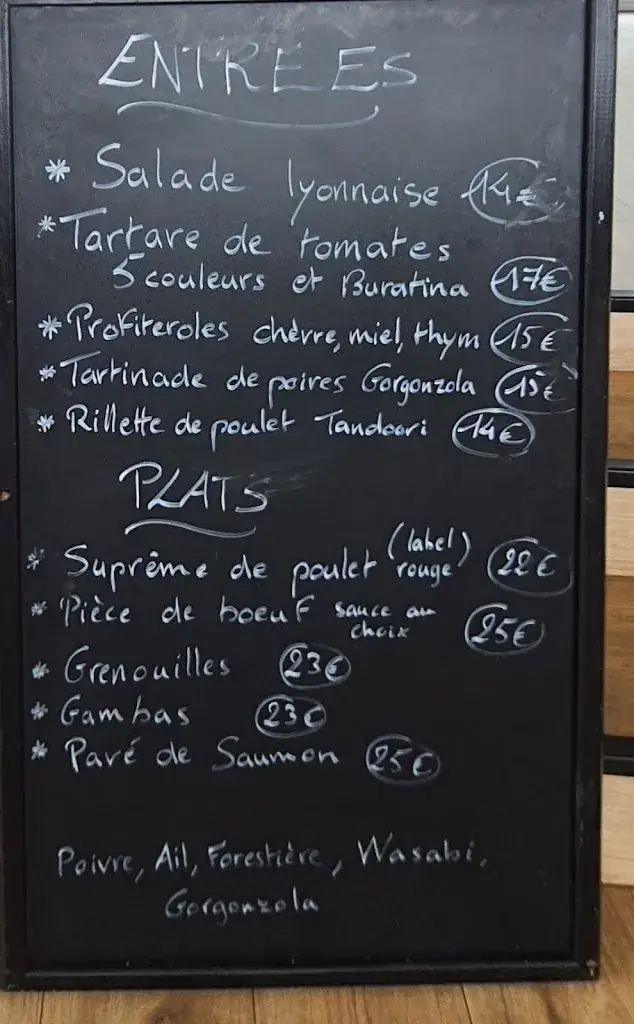 ENTREES
* Salade lyonnaise 14€
* Tartare de tomates
5 couleurs et Buratina 17€
* Profiteroles chèvre, miel, thym 15€
* Tartinade de poires Gorgonzola 15€
* Rillette de poulet Tandoori 14€
PLATS
* Suprême de poulet (label rouge) 22€
* Pièce de boeuf sauce au choix 25€
* Grenouilles 23€
* Gambas 23€
* Pavé de Saumon 25€
Poivre, Ail, Forestière, Wasabi,
Gorgonzola